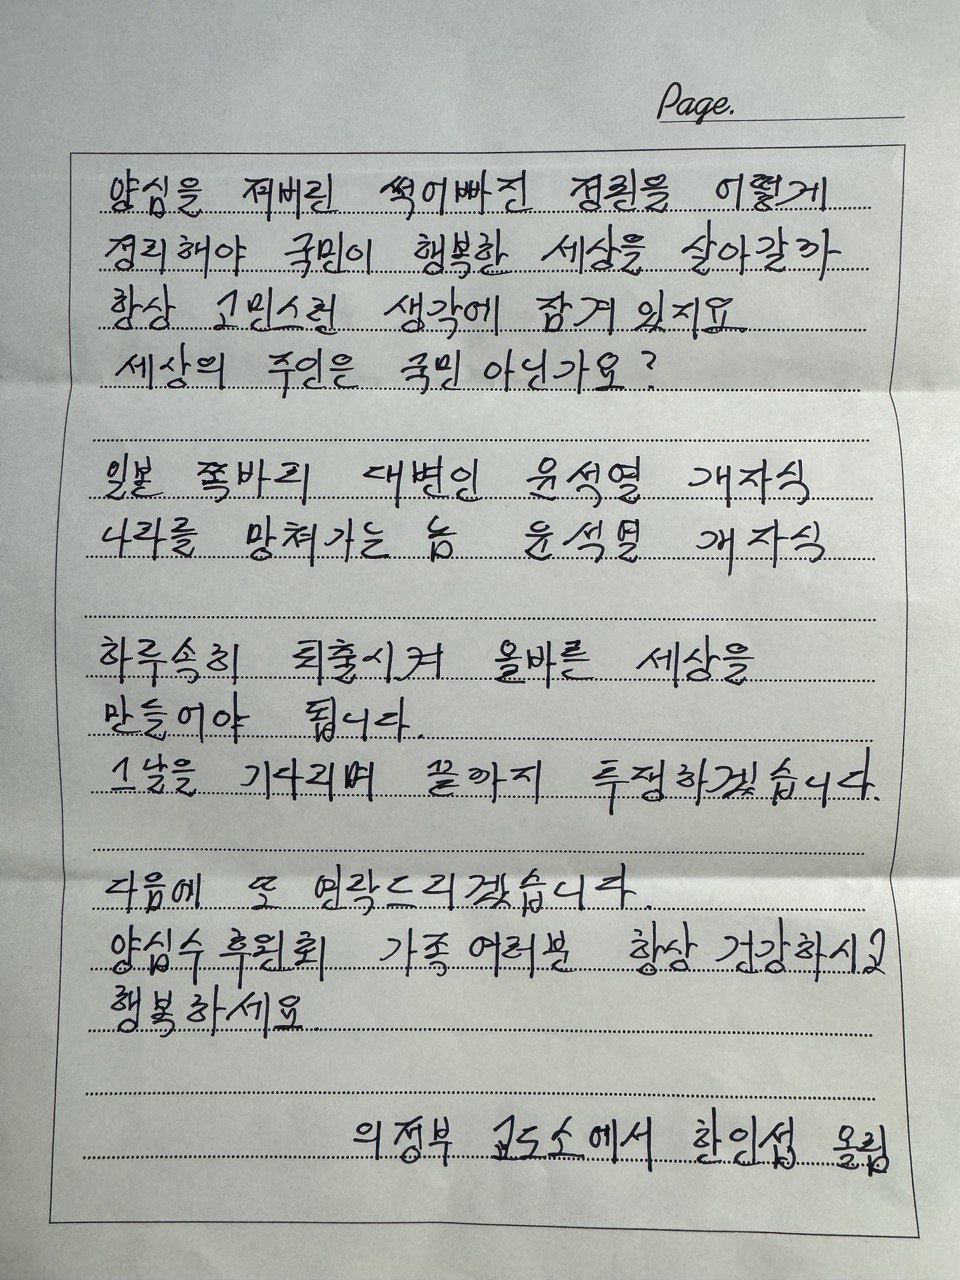 Page.
양심을 져버린 썩어빠진 정권을 어떻게
정리해야 국민이 행복한 세상을 살아갈까
항상 고민스런 생각에 잠겨 있지요
세상의 주인은 국민 아닌가요?
일본 쪽바리 대변인 윤석열 개자식
나라를 망쳐가는 놈 윤석열 개자식
하루속히 퇴출시켜 올바른 세상을
만들어야 됩니다.
그날을 기다리며 끝까지 투쟁하겠습니다.
다음에 또 연락드리겠습니다.
양심수후원회 가족여러분 항상 건강하시고
행복하세요.
의정부 교도소에서 한인섭 올림